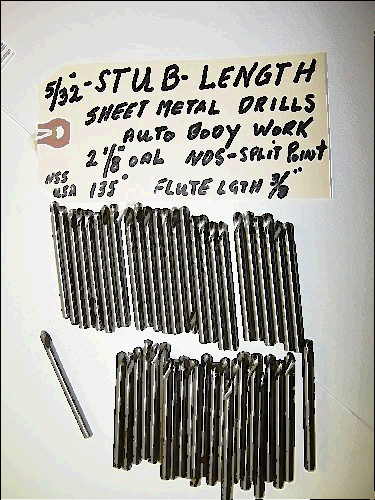 5/32"-STUB-LENGTH
SHEET METAL DRILLS
AUTO BODY WORK
2 1/8" OAL NDS-SPLIT POINT
HSS
USA 135° FLUTE LGTH 3/8"